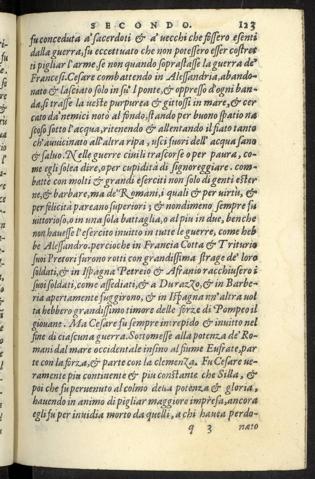 SECONDO. 123
fu conceduta a' sacerdoti & a' vecchi che fossero esenti
dalla guerra, fu eccettuato che non potessero esser costret
ti pigliar l'arme, se non quando soprastasse la guerra de'
Francesi. Cesare combattendo in Alessandria, abando-
nato & lasciato solo in su' l ponte, & oppresso d'ogni ban-
da, si trasse la veste purpurea & gittossi in mare, & cer
cato da' nemici notò al fondo, stando per buono spatio na
scoso sotto l'acqua, ritenendo & allentando il fiato tanto
ch'avvicinato all'altra ripa, uscì fuori dell'acqua sano
& salvo. Nelle guerre civili trascorse o per paura, co-
me egli solea dire, o per cupidità di signoreggiare. com-
battè con molti & grandi eserciti non solo di genti ester
ne, & barbare, ma de' Romani, i quali & per virtù, &
per felicità pareano superiori; & nondimeno sempre fu
vittorioso, o in una sola battaglia, o al piu in due, benche
non havesse l'esercito invitto in tutte le guerre, come heb
be Alessandro. percioche in Francia Cotta & Triturio
suoi Pretori furono rotti con grandissima strage de' loro
soldati, & in Ispagna Petreio & Afranio racchiusero i
suoi soldati, come assediati, & a Durazzo, & in Barbe-
ria apertamente fuggirono, & in Ispagna un'altra vol
ta hebbero grandissimo timore delle forze di Pompeo il
giovane. Ma Cesare fu sempre intrepido & invitto nel
fine di ciascuna guerra. Sottomesse alla potenza de' Ro-
mani dal mare occidentale insino al fiume Eufrate, par
te con la forza, & parte con la clemenza. Fu Cesare ve-
ramente piu continente & piu constante che Silla, &
poi che fu pervenuto al colmo della potenza & gloria,
havendo in animo di pigliar maggiore impresa, ancora
egli fu per invidia morto da quelli, a chi havea perdo-
q 3 nato